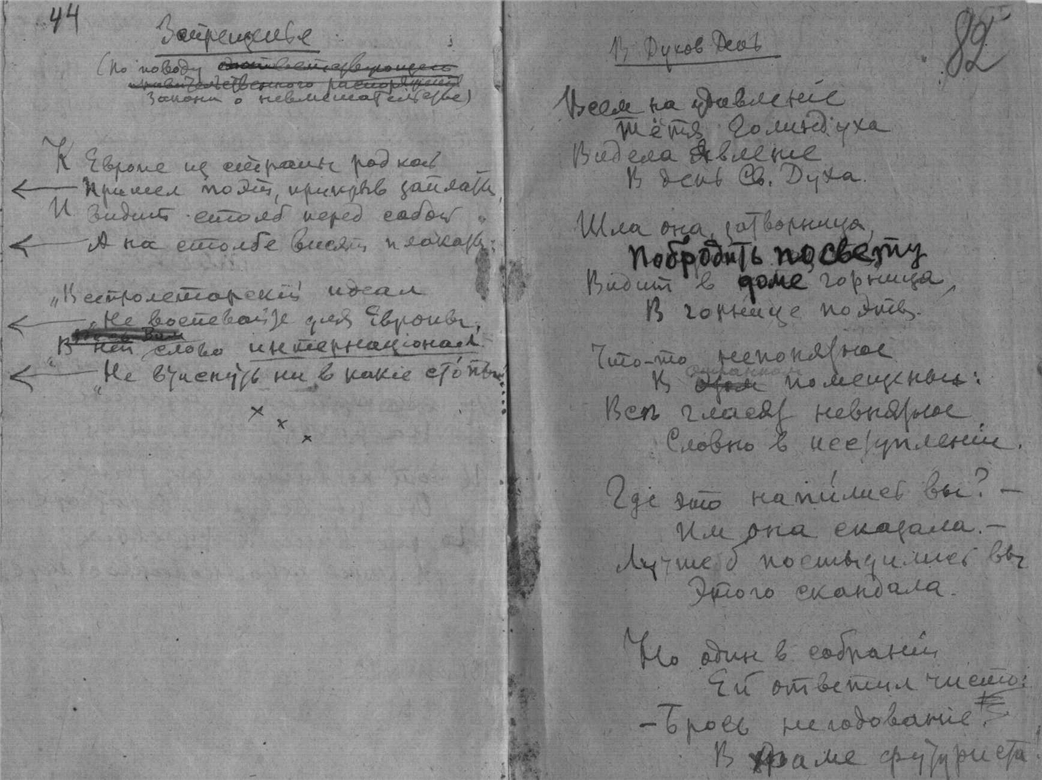 44
Запрещенье
(по поводу
закона о невмешательстве)
К Европе из страны родной
Пришел поэт, прикрыв заплаты,
И видит столб перед собой,
А на столбе висят плакаты:
„Пролетарский идеал
„Не воспевайте для Европы,
„В ней слово интернационал
„Не втиснуть ни в какие стопы
× × ×
82
В Духов День
Всем на удивленіе
Тётя Голиндуха
Видела явленіе
В день Св. Духа.
Шла она, затворница,
Побродить по свету
Видит в доме горница,
В горнице поэты.
Что-то непонятное
В странном помещеньи:
Все гласят невнятное
Словно в исступленіи.
Где это напились вы? —
Им она сказала. —
Лучше б постыдились вы
Этого скандала.
Но один в собраніи
Ей ответил чисто:
— Брось негодованіе
В храме футуриста